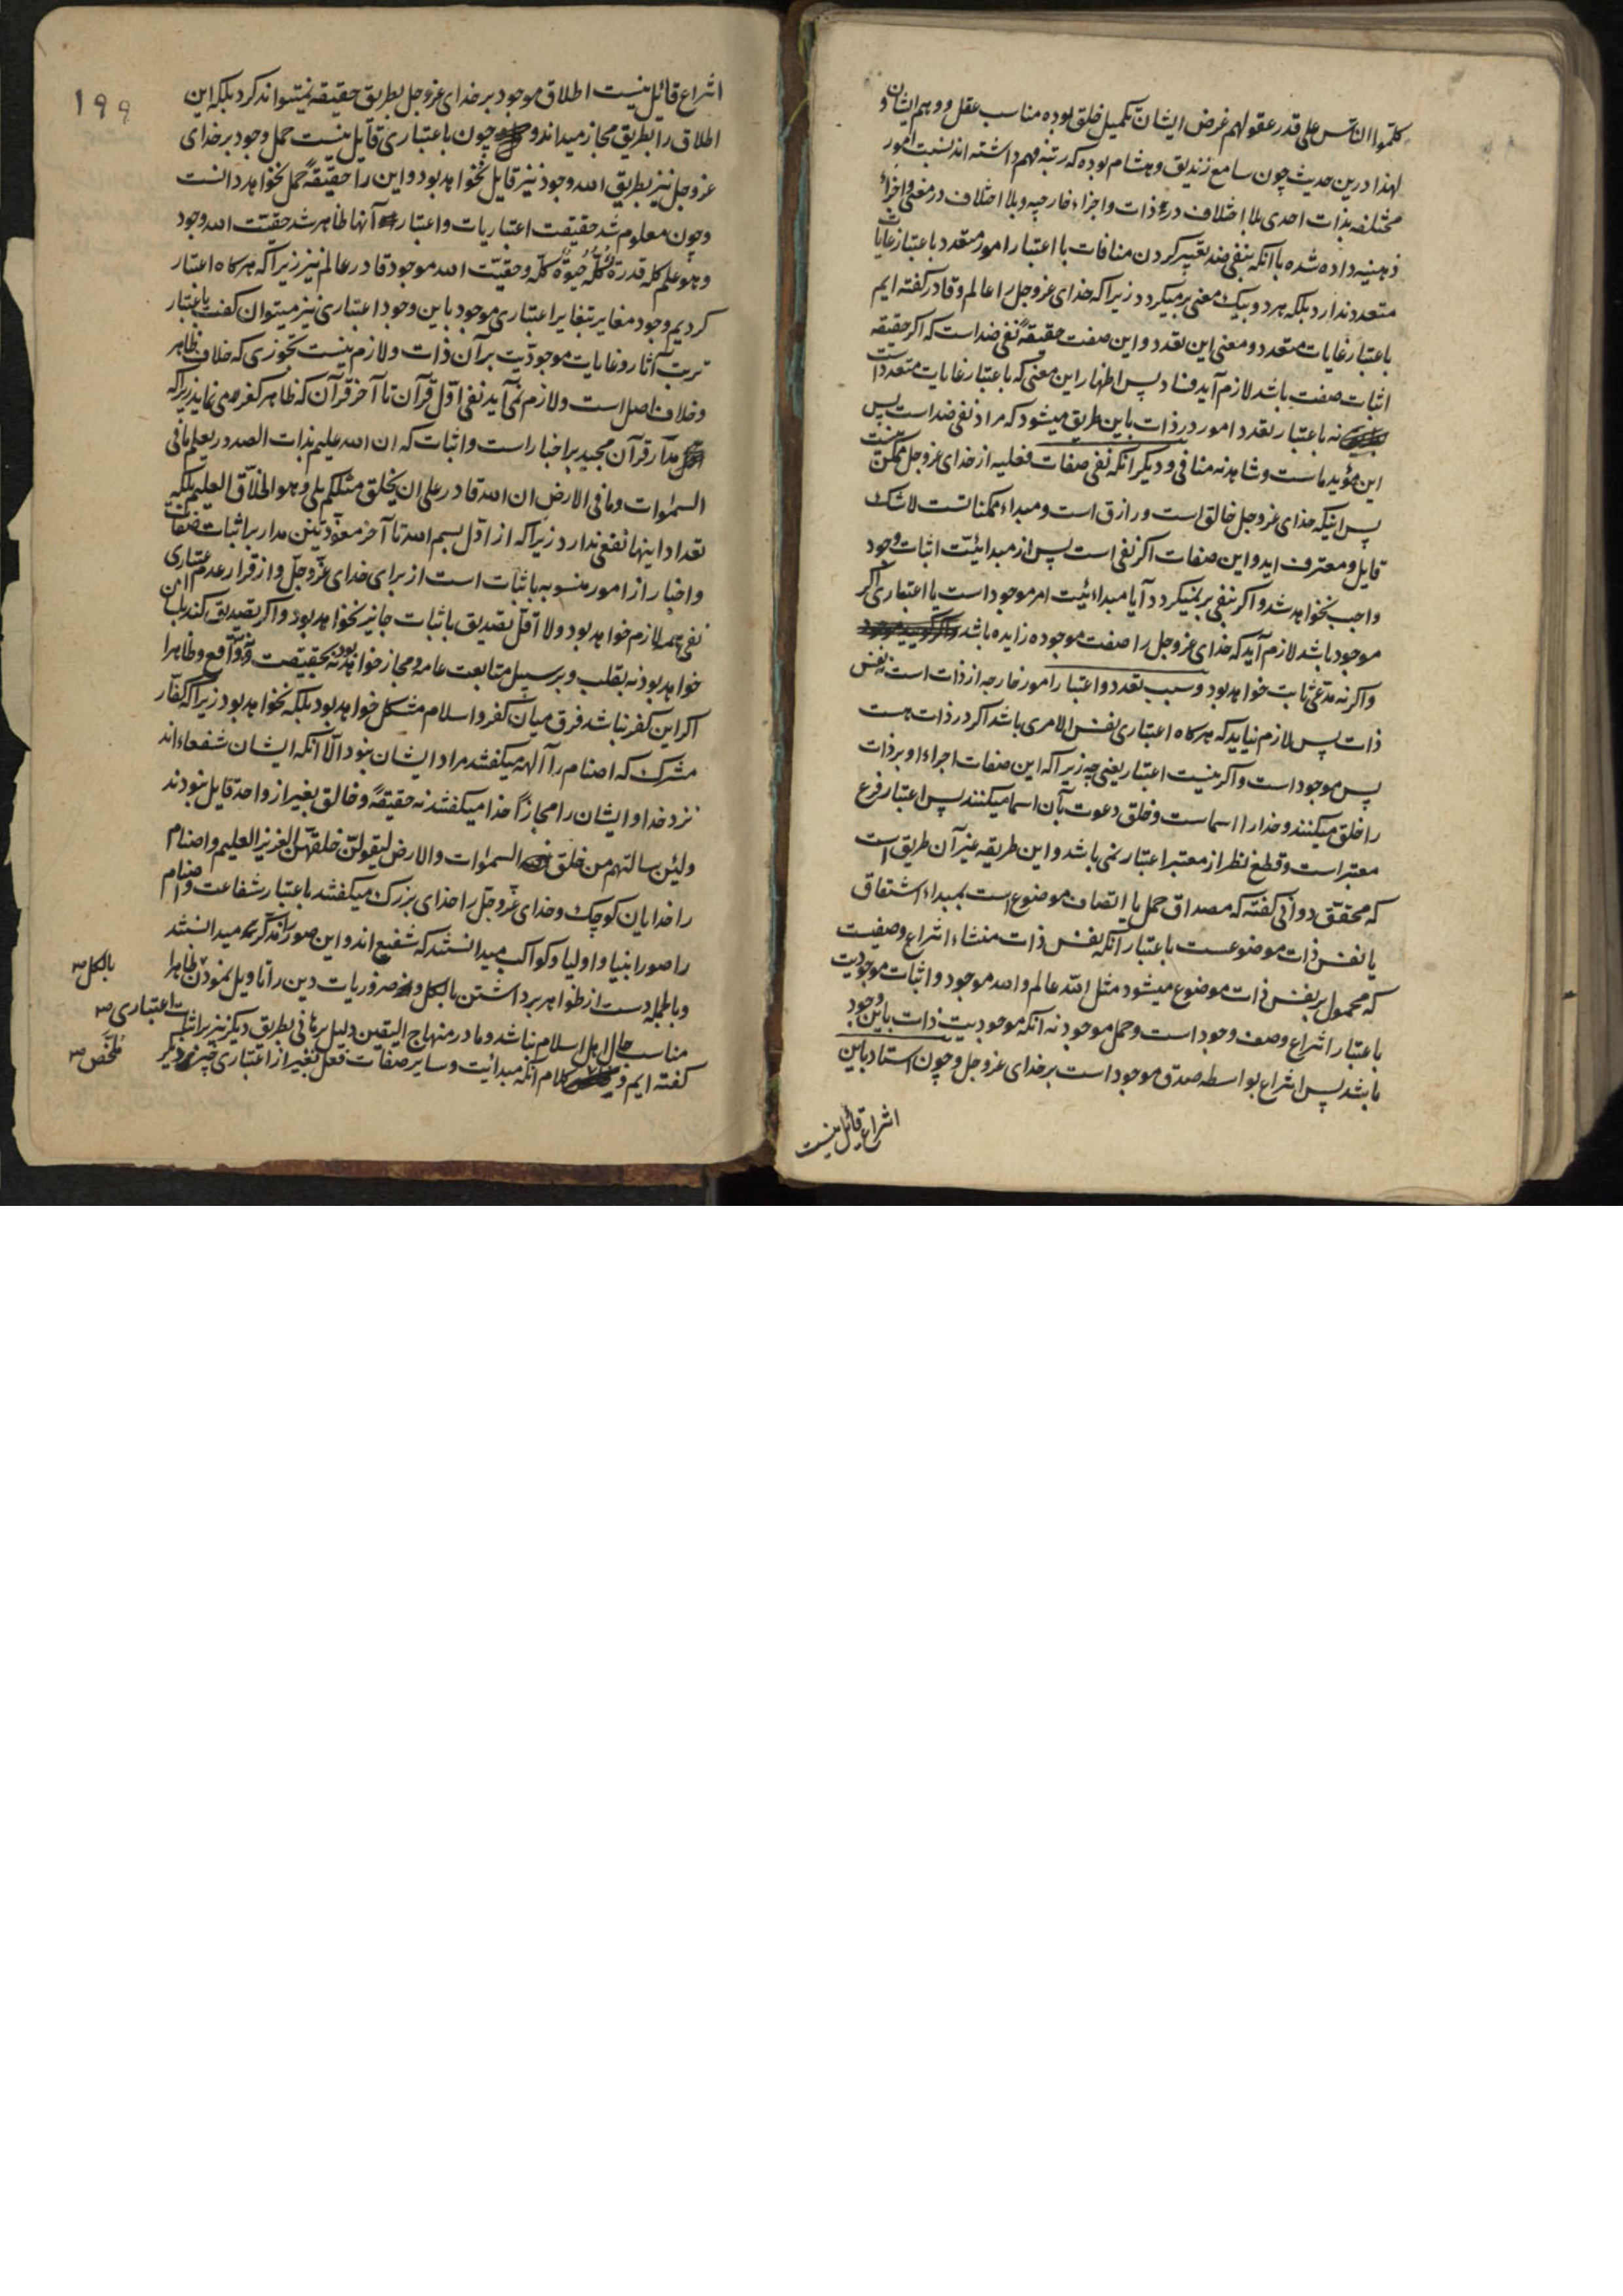 کلموا الناس علی قدر عقولهم غرض ایشان تکمیل خلق بوده مناسب عقل و وهم ایشان و
لهذا درین حدیث چون سامع زندیق و هشام بوده که رتبه فهم داشته اند نسبت امور
مختلفه بذات احدی بلا اختلاف در ذات و اجزاء خارجیه و بلا اختلاف در معنی و اجزاء
ذهنیه داده شده با آنکه بنفی ضد تعبیر کردن منافات با اعتبار امور متعدد باعتبار غایات
متعدد ندارد بلکه هر دو بیک معنی برمیگردد زیرا که خدای عز وجل را عالم و قادر گفته ایم
باعتبار غایات متعدد و معنی این تعدد و این صفت حقیقةً نفی ضد است که اگر حقیقه
اثبات صفت باشد لازم آید فساد پس اظهار این معنی که باعتبار غایات متعدد است
نه باعتبار تعدد امور در ذات باین طریق میشود که مراد نفی ضد است پس
این مؤید ماست و شاهد نه منافی و دیگر آنکه نفی صفات فعلیه از خدای عز وجل ممکن نیست
پس اینکه خدای عز وجل خالق است و رازق است و مبداء ممکناتست لاشک
قایل و معترف اید و این صفات اگر نفی است پس از مبدائیّت اثبات وجود
واجب نخواهد شد و اگر بنفی برنمیگردد آیا مبداءئیت امر موجود است یا اعتباری اگر
موجود باشد لازم آید که خدای عز وجل را صفت موجوده زایده باشد
و اگر نه مدّعی ثابت خواهد بود و سبب تعدد و اعتبار امور خارجه از ذات است نه نفس
ذات پس لازم نیاید که هرکاه اعتباری نفس الامری باشد اگر در ذات هست
پس موجود است و اگر نیست اعتبار یعنی چه زیرا که این صفات اجراء او بر ذات
را خلق میکنند و خدا را اسماست و خلق دعوت بآن اسما میکنند پس اعتبار فرع
معتبر است و قطع نظر از معتبر اعتبار نمی باشد و این طریقه غیر آن طریق است
که محقق دوانی گفته که مصداق حمل یا اتصاف موضوع است بمبداء اشتقاق
یا نفس ذات موضوعست باعتبار آنکه نفس ذات منشاء انتزاع وصفیست
که محمول بر نفس ذات موضوع میشود مثل الله عالم و الله موجود و اثبات موجودیت
باعتبار انتزاع وصف وجود است و حمل موجود نه آنکه موجودیت ذات باین وجود
باشد پس انتزاع بواسطه صدق موجود است بر خدای عز وجل و چون استاد باین
انتزاع قائل نیست
۱۹۹
انتزاع قائل نیست اطلاق موجود بر خدای عز وجل بطریق حقیقه نمیتواند کرد بلکه این
اطلاق را بطریق مجاز میداند و چون باعتباری قایل نیست حمل وجود بر خدای
عز وجل نیز بطریق الله وجود نیز قایل نخواهد بود و این را حقیقةً حمل نخواهد دانست
و چون معلوم شد حقیقت اعتباریات و اعتبار آنها ظاهر شد حقیّت الله وجود
و هو علم کله قدرة کلّه حیوة کلّه و حقیّت الله موجود قادر عالم نیز زیرا که هرکاه اعتبار
کردیم وجود مغایر بتغایر اعتباری موجود باین وجود اعتباری نیز میتوان گفت باعتبار
ترتب آثار و غایات موجودیّت بر آن ذات و لازم نیست تجوزی که خلاف ظاهر
و خلاف اصل است و لازم نمی آید نفی اوّل قرآن تا آخر قرآن که ظاهر کفر می نماید زیرا که
مدار قرآن مجید بر اخبار است و اثبات که ان الله علیم بذات الصدور یعلم ما فی
السموات و ما فی الارض ان الله قادر علی ان یخلق مثلکم بلی و هو الخلّاق العلیم بلکه
تعداد اینها نفعی ندارد زیرا که از اوّل بسم الله تا آخر معوّذتین مدار بر اثبات صفات
و اخبار از امور منسوبه باثبات است از برای خدای عزّ وجلّ و از قرار عدم اعتباری
نفی همه لازم خواهد بود و لا اقل تصدیق باثبات جایز نخواهد بود و اگر تصدیق کند بلسان
خواهد بود نه بقلب و بر سبیل متابعت عامه و مجاز خواهد بود نه بحقیقت و واقع و ظاهرا
اگر این کفر نباشد فرق میان کفر و اسلام مشکل خواهد بود بلکه نخواهد بود زیرا که کفّار
مشرک که اصنام را آلهه میگفتند مراد ایشان نبود الّا آنکه ایشان شفعاءاند
نزد خدا و ایشان را مجازاً خدا میگفتند نه حقیقةً و خالق بغیر از واحد قایل نبودند
ولئن سالتهم من خلق السموات والارض لیقولنّ خلقهنّ العزیز العلیم و اصنام
را خدایان کوچک و خدای عزّ وجلّ را خدای بزرک میگفتند باعتبار شفاعت و اصنام
را صور انبیا و اولیا و کواکب میدانستند که شفیع اند و این صور را میدانستند
و بالجمله دست از ظواهر برداشتن بالکل و ضروریات دین را تاویل نمودن ظاهرا
بالکل صح
مناسب حال اهل اسلام نباشد و ما در منهاج الیقین دلیل برهانی بطریق دیگر نیز بر اثبات اعتباری صح
گفته ایم و کلام آنکه مبدائیت و سایر صفات فعل بغیر از اعتباری چیز دیگر
ملخّص صح